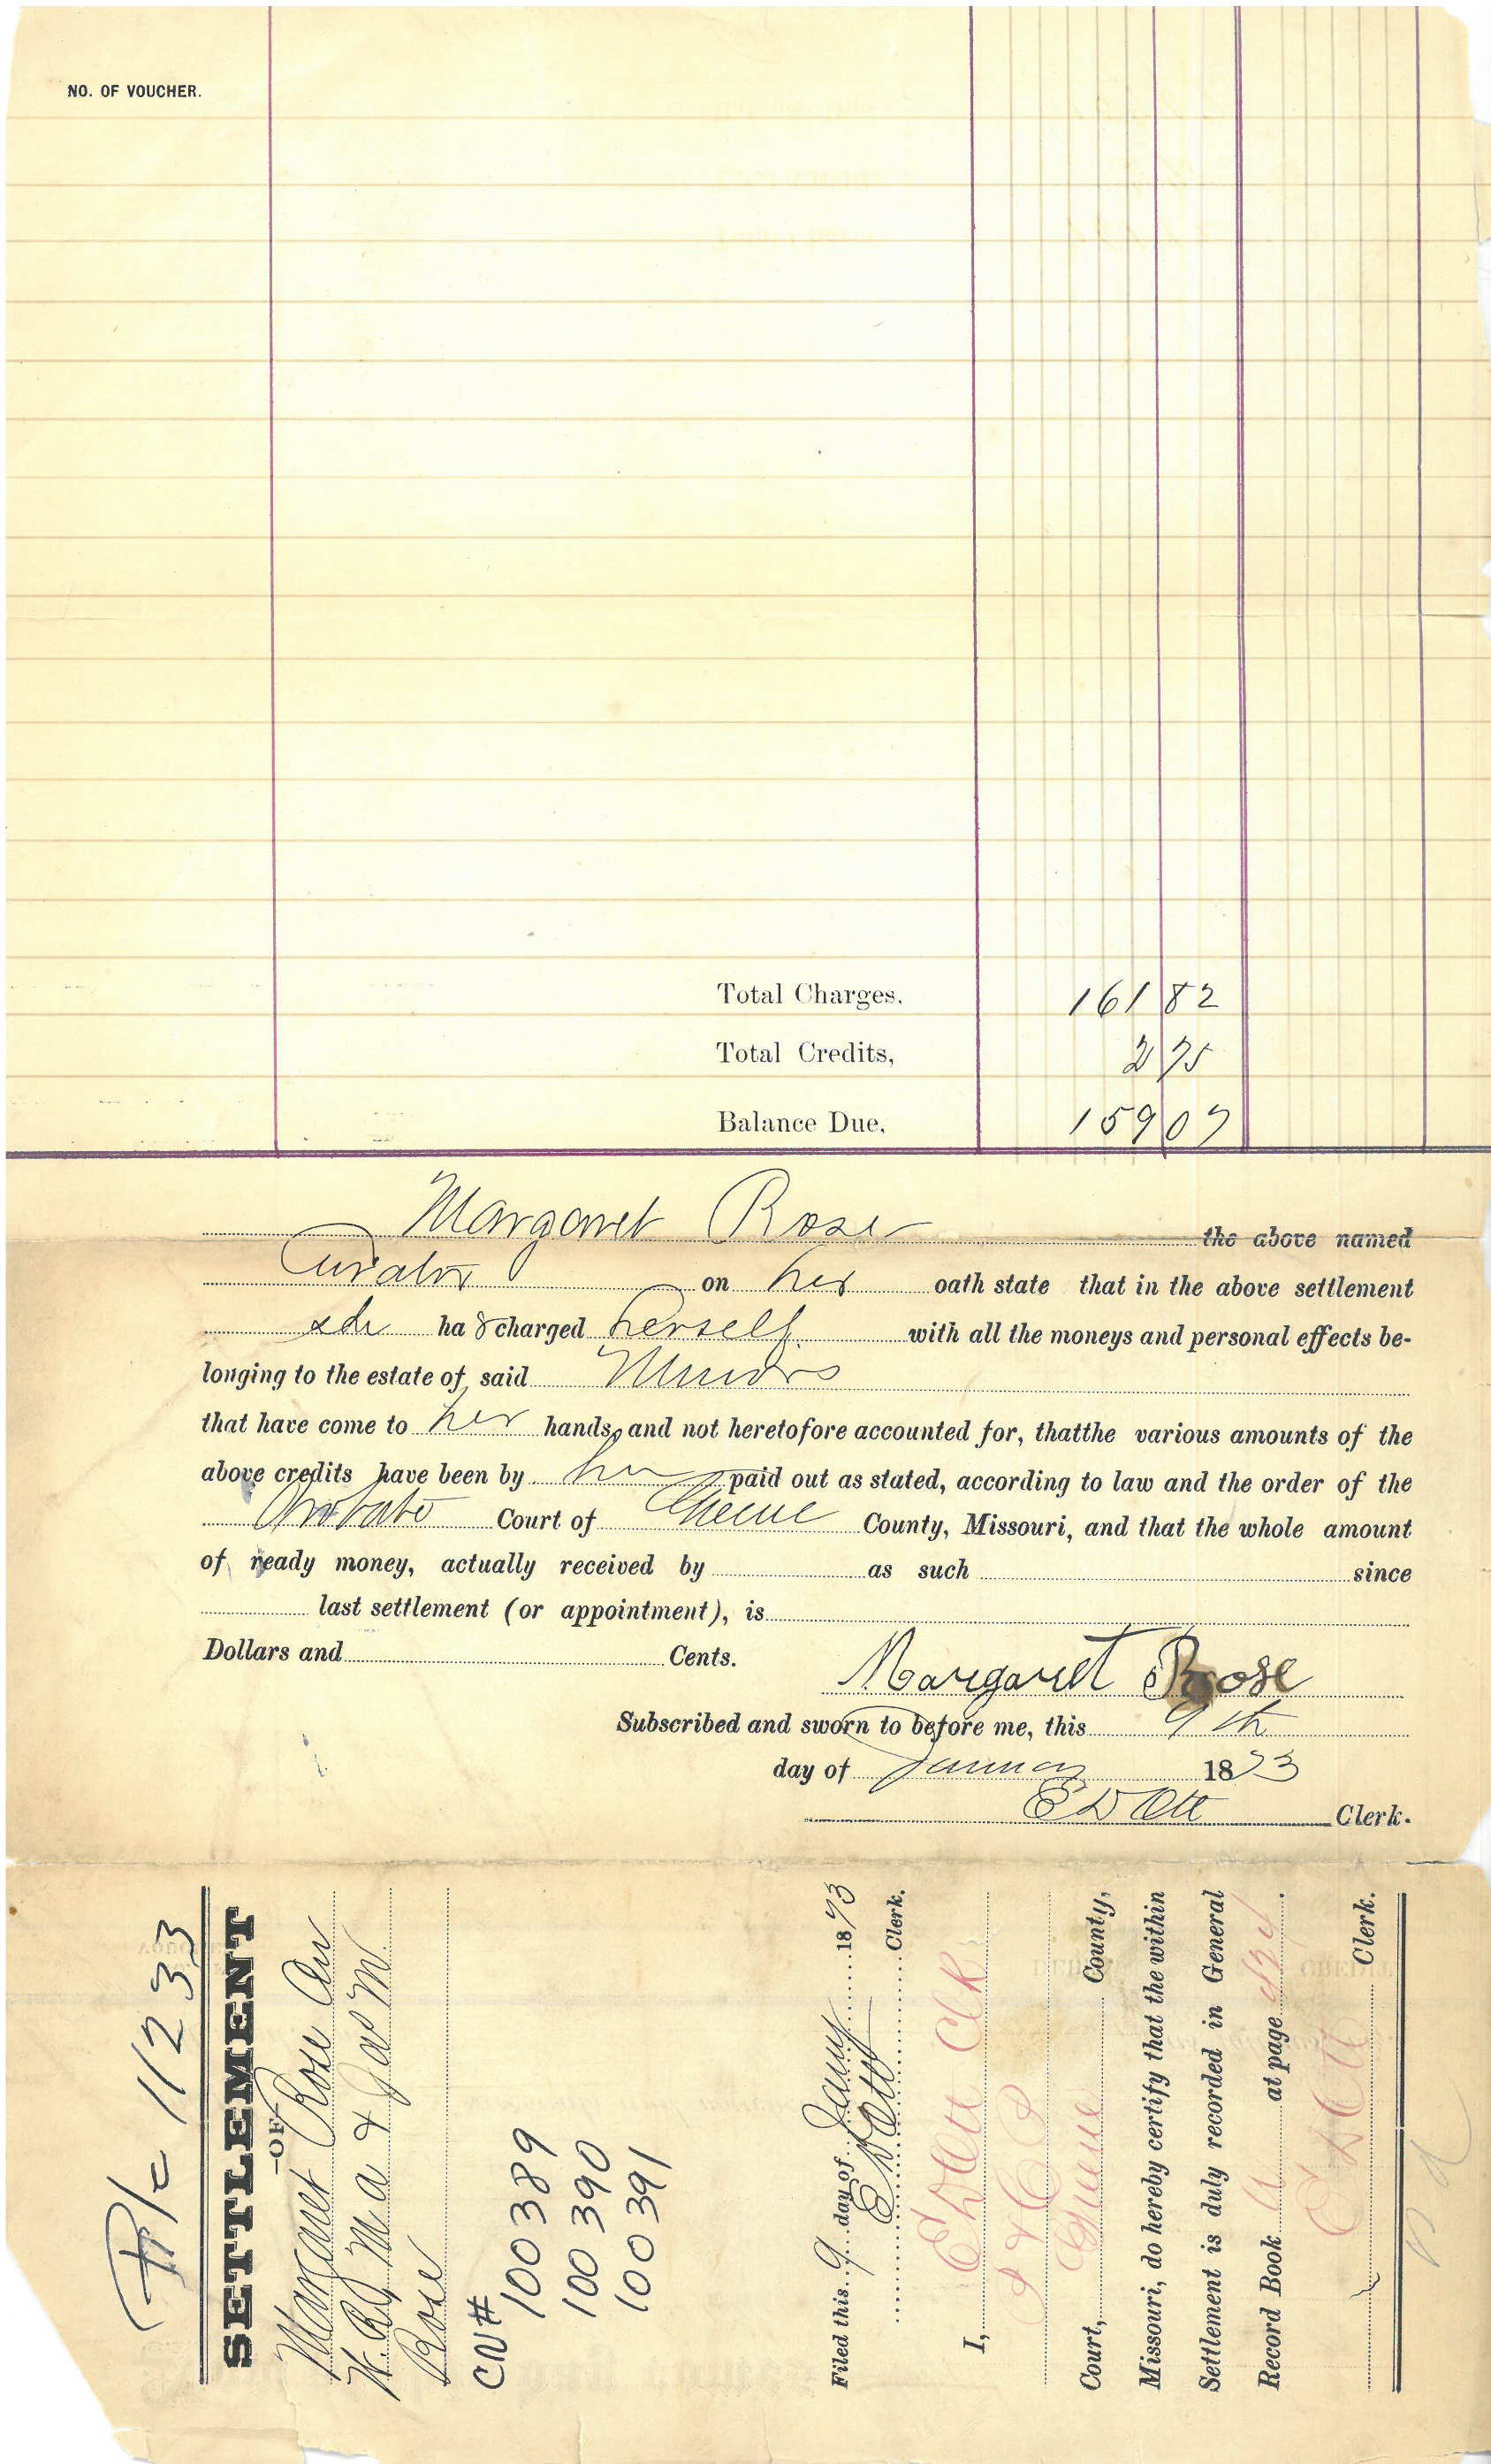 NO. OF VOUCHER.
Total Charges. 161 82
Total Credits, 2 75
Balance Due, 159 07
Margaret Rose the above named
Curator on her oath state that in the above settlement
she ha s charged herself with all the moneys and personal effects be-
longing to the estate of said Minors
that have come to her hands, and not heretofore accounted for, thatthe various amounts of the
above credits have been by her paid out as stated, according to law and the order of the
Probate Court of Greene County, Missouri, and that the whole amount
of ready money, actually received by as such since
last settlement (or appointment), is
Dollars and Cents.
Margaret Rose
Subscribed and sworn to before me, this 9th
day of January 1873
E D Ott Clerk.
11233
SETTLEMENT
—OF—
Margaret Rose Cur
W. R, M A & Jas M.
Rose
CN#
100389
100390
100391
Filed this 9 day of Jany 1873
E D Ott Clerk.
I, E D Ott Clk
Court, Greene County,
Missouri, do hereby certify that the within
Settlement is duly recorded in General
Record Book A at page
E D Ott Clerk.